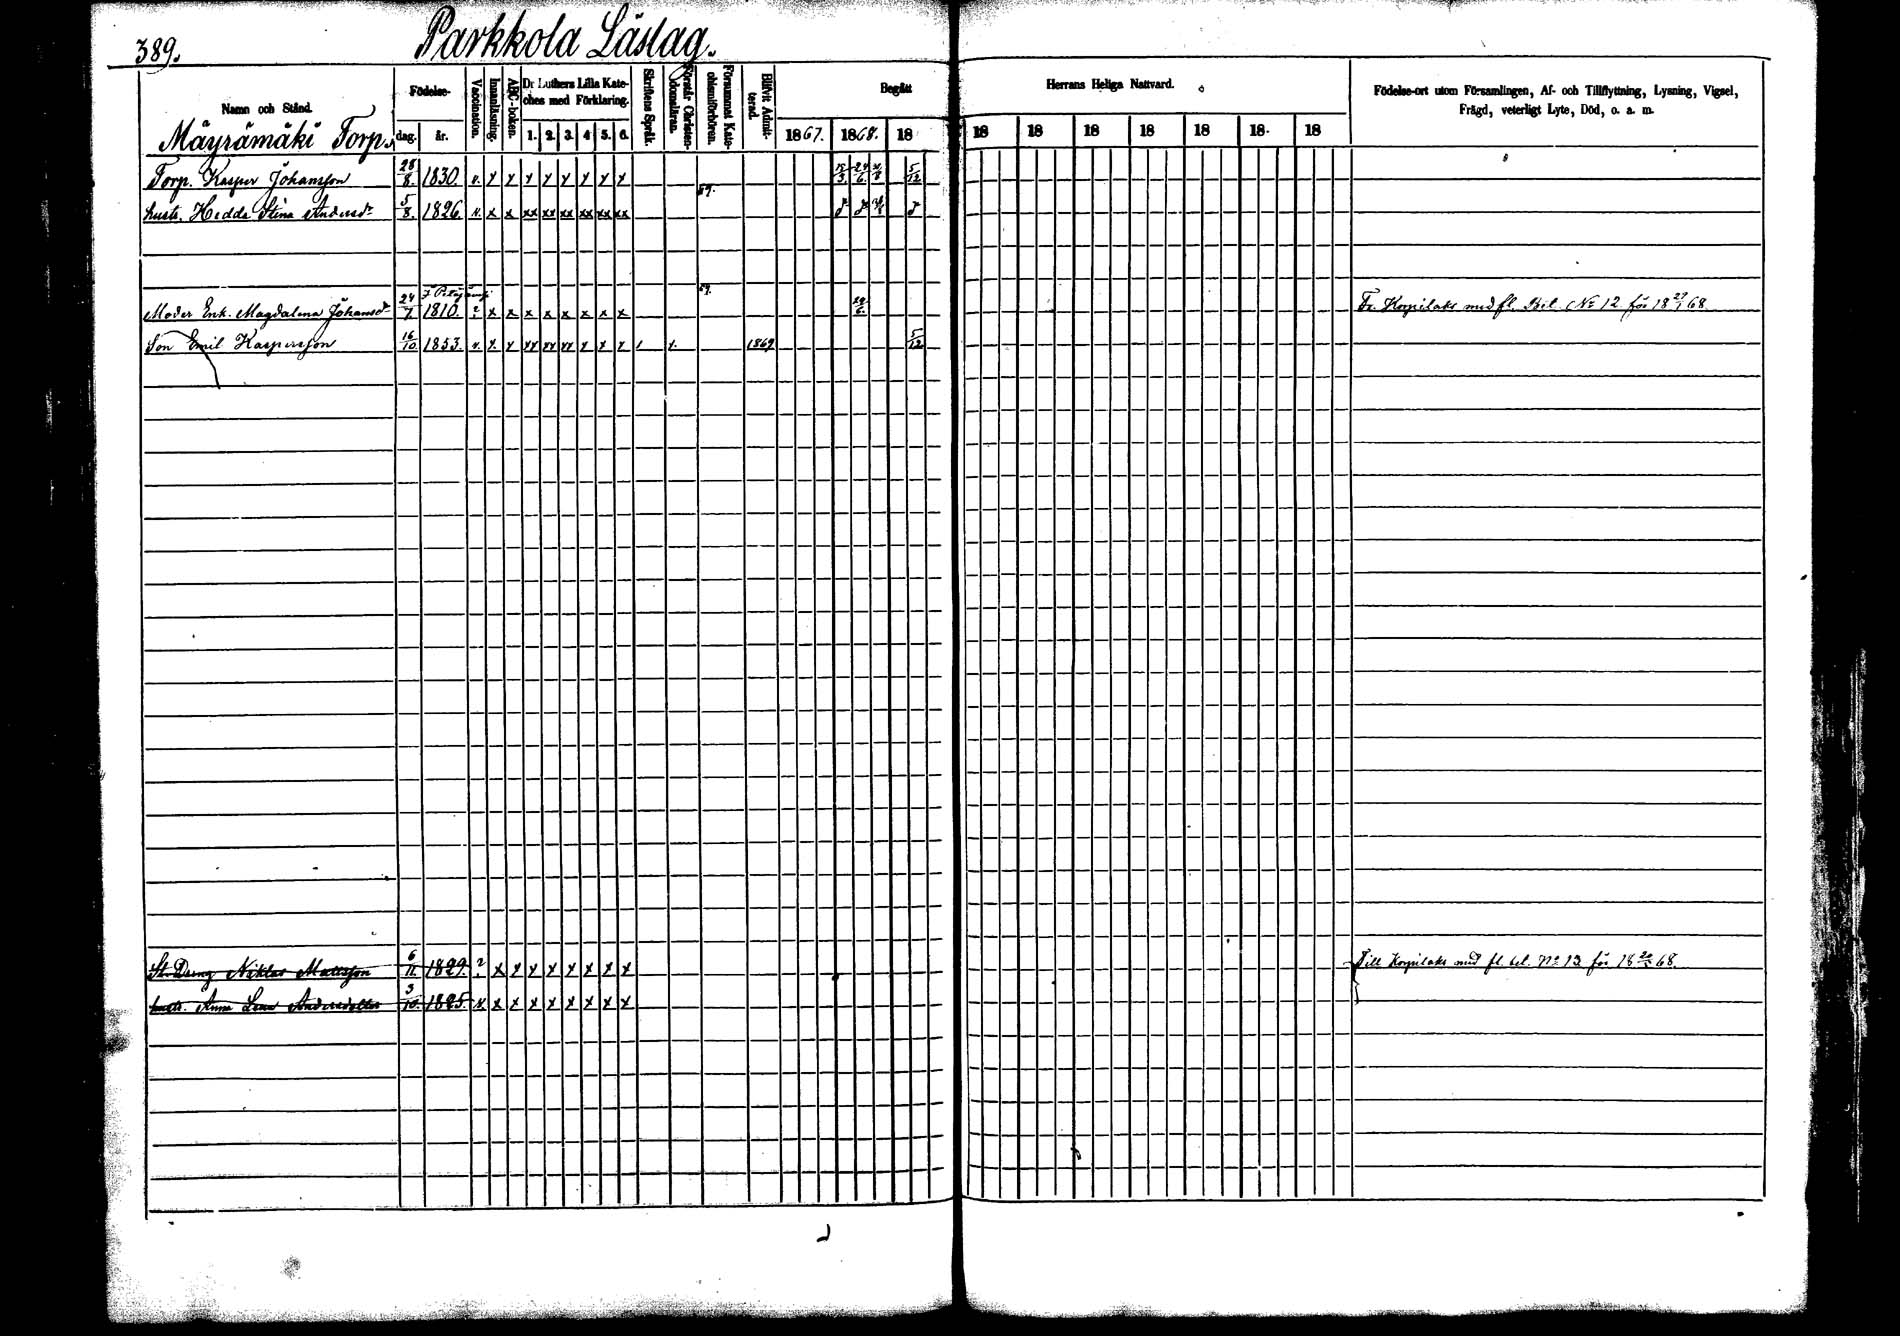 389.
Parkkola Läslag.
Namn och Stånd.
Mäyrämäki Torp.
Födelse-
dag. år.
Vaccination.
Innanläsning.
ABC-boken.
Dr Luthers Lilla Kate-
ches med Förklaring.
1. 2. 3. 4 5. 6.
Skriftens Språk.
Förstår Christen-
domsläran.
Försummat Kate-
chismiförhören.
Blifvit Admit-
terad.
Begått
1867. 1868. 18
Herrans Heliga Nattvard.
18 18 18 18 18 18 18
Födelse-ort utom Församlingen, Af- och Tillflyttning, Lysning, Vigsel,
Frägd, veterligt Lyte, Död, o. a. m.
Torp. Kasper Johansson 28/8. 1830. v. x x x x x x x x 15/3. 24/6. 5/12
69.
hustr. Hedda Stina Andersdr 5/8. 1826. v. x x xx xx xx xx xx xx
69.
Moder Enk. Magdalena Johansdr 24/7 1810. ? x x x x x x x x 24/6. Fr. Korpilaks med fl. Bet. No 12 för 18 27/1 68
Son Emil Kaspersson 16/10 1853. v. x x xx xx xx x x x 1869 5/12
St. Dreng Niklas Mattsson 6/11. 1829. ? x x x x x x x x Till Korpilaks med fl. bet. No 13 för 18 68.
hustr. Anna Lena Andersdotter 3/10. 1825. v. x x x x x x x x